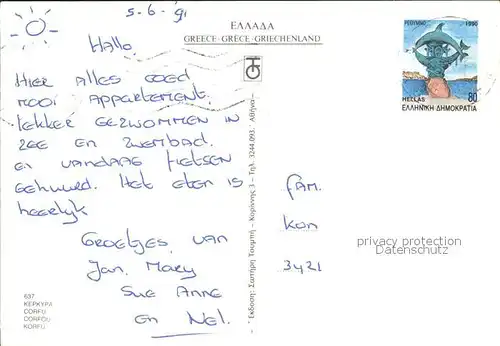 5-6-'91
ΕΛΛΑΔΑ
GREECE·GRECE·GRIECHENLAND
Hallo,
Hier alles goed
mooi appartement.
lekker gezwommen in
zee en zwembad.
en vandaag fietsen
gehuurd. Het eten is
heerlijk
Groetjes van
Jan, Mary
Sue Anne
en Nel.
637
ΚΕΡΚΥΡΑ
CORFU
CORFOU
KORFU
Έκδοση: Σωτήρη Τουμπή - Κορώνης 3 - Τηλ. 3244.093. Αθήνα
ΡΕΘΥΜΝΟ 1990
HELLAS 80
ΕΛΛΗΝΙΚΗ ΔΗΜΟΚΡΑΤΙΑ
fam.
Kon
3421
privacy protection
Datenschutz